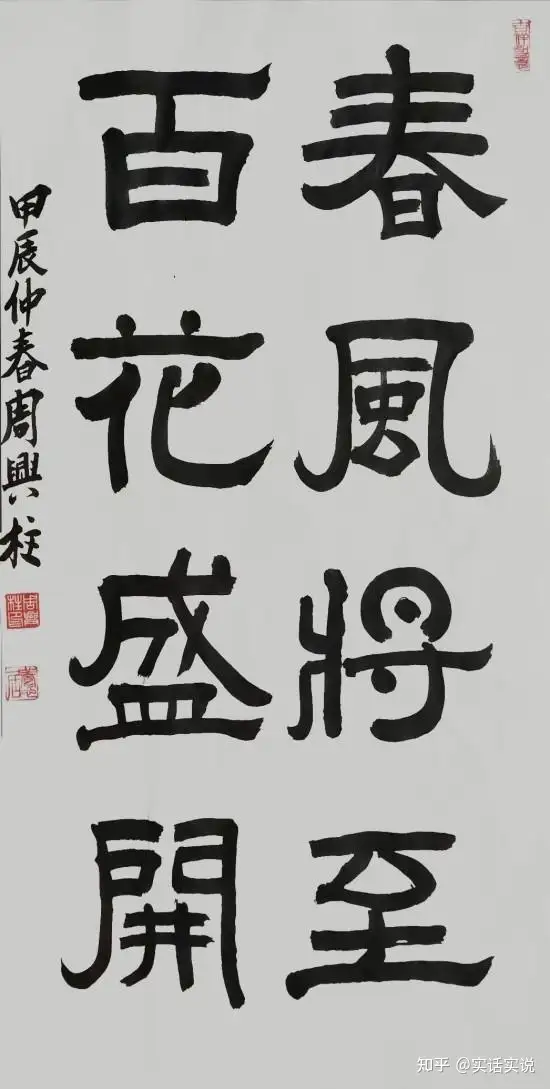 春風将至
百花盛開
甲辰仲春周興柱
知乎 @实话实说